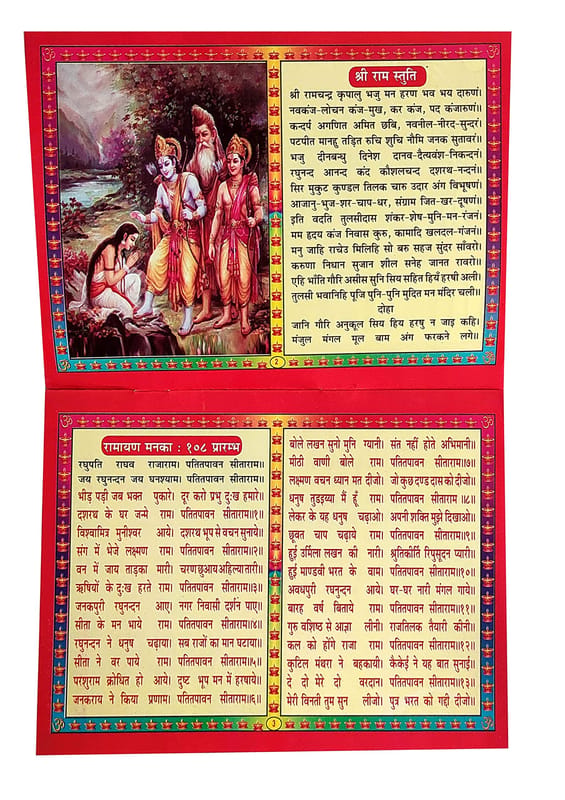 श्री राम स्तुति
श्री रामचन्द्र कृपालु भजु मन हरण भव भय दारुणं।
नवकंज-लोचन कंज-मुख, कर कंज, पद कंजारुणं॥
कन्दर्प अगणित अमित छबि, नवनील-नीरद-सुन्दरं।
पटपीत मानहु तड़ित रुचि शुचि नौमि जनक सुतावरं॥
भजु दीनबन्धु दिनेश दानव-दैत्यवंश-निकन्दनं।
रघुनन्द आनन्द कंद कौशलचन्द दशरथ-नन्दनं॥
सिर मुकुट कुण्डल तिलक चारु उदार अंग विभूषणं।
आजानु-भुज-शर-चाप-धर, संग्राम जित-खर-दूषणं॥
इति वदति तुलसीदास शंकर-शेष-मुनि-मन-रंजनं।
मम हृदय कंज निवास कुरु, कामादि खलदल-गंजनं॥
मनु जाहि राचेउ मिलिहि सो बरु सहज सुंदर साँवरो।
करुणा निधान सुजान शील सनेह जानत रावरो॥
एहि भाँति गौरि असीस सुनि सिय सहित हियँ हरषी अली।
तुलसी भवानिहि पूजि पुनि-पुनि मुदित मन मंदिर चली॥
दोहा
जानि गौरि अनुकूल सिय हिय हरषु न जाइ कहि।
मंजुल मंगल मूल बाम अंग फरकने लगे॥
2
रामायण मनका : १०८ प्रारम्भ
रघुपति राघव राजाराम। पतितपावन सीताराम॥
जय रघुनन्दन जय घनश्याम। पतितपावन सीताराम॥
भीड़ पड़ी जब भक्त पुकारे। दूर करो प्रभु दुःख हमारे॥
दशरथ के घर जन्मे राम। पतितपावन सीताराम॥१॥
विश्वामित्र मुनीश्वर आये। दशरथ भूप से वचन सुनाये॥
संग में भेजे लक्ष्मण राम। पतितपावन सीताराम॥२॥
वन में जाय ताड़का मारी। चरण छुआय अहिल्या तारी॥
ऋषियों के दुःख हरते राम। पतितपावन सीताराम॥३॥
जनकपुरी रघुनन्दन आए। नगर निवासी दर्शन पाए॥
सीता के मन भाये राम। पतितपावन सीताराम॥४॥
रघुनन्दन ने धनुष चढ़ाया। सब राजों का मान घटाया॥
सीता ने वर पाये राम। पतितपावन सीताराम॥५॥
परशुराम क्रोधित हो आये। दुष्ट भूप मन में हरषाये॥
जनकराय ने किया प्रणाम। पतितपावन सीताराम॥६॥
बोले लखन सुनो मुनि ग्यानी। संत नहीं होते अभिमानी॥
मीठी वाणी बोले राम। पतितपावन सीताराम॥७॥
लक्ष्मण वचन ध्यान मत दीजो। जो कुछ दण्ड दास को दीजो॥
धनुष तुड़इय्या मैं हूँ राम। पतितपावन सीताराम॥८॥
लेकर के यह धनुष चढ़ाओ। अपनी शक्ति मुझे दिखाओ॥
छूवत चाप चढ़ाये राम। पतितपावन सीताराम॥९॥
हुई उर्मिला लखन की नारी। श्रुतिकीर्ति रिपुसूदन प्यारी॥
हुई माण्डवी भरत के वाम। पतितपावन सीताराम॥१०॥
अवधपुरी रघुनन्दन आये। घर-घर नारी मंगल गाये॥
बारह वर्ष बिताये राम। पतितपावन सीताराम॥११॥
गुरु वशिष्ठ से आज्ञा लीनी। राजतिलक तैयारी कीनी॥
कल को होंगे राजा राम। पतितपावन सीताराम॥१२॥
कुटिल मंथरा ने बहकायी। कैकेई ने यह बात सुनाई॥
दे दो मेरे दो वरदान। पतितपावन सीताराम॥१३॥
मेरी विनती तुम सुन लीजो। पुत्र भरत को गद्दी दीजो॥
3